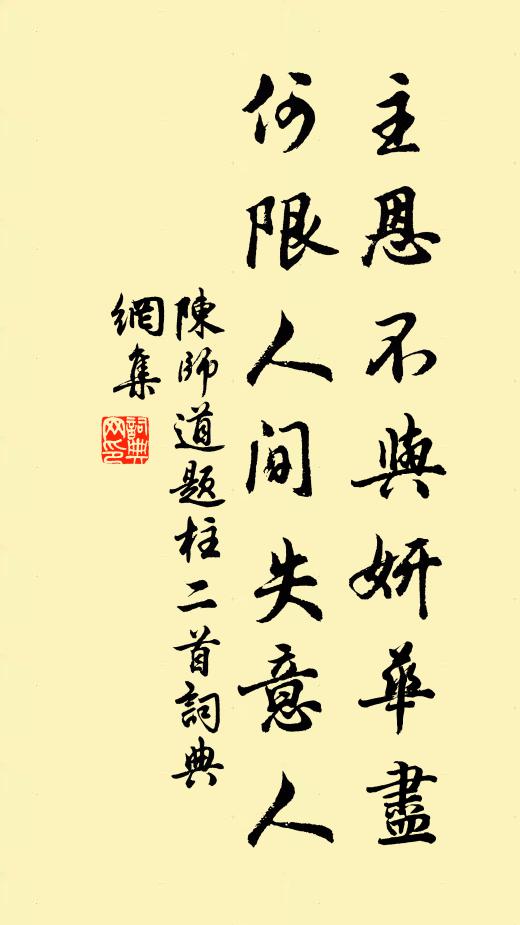 主恩不與妍華盡
何限人間失意人
陳師道題柱二首詞典
網集
詞典網印